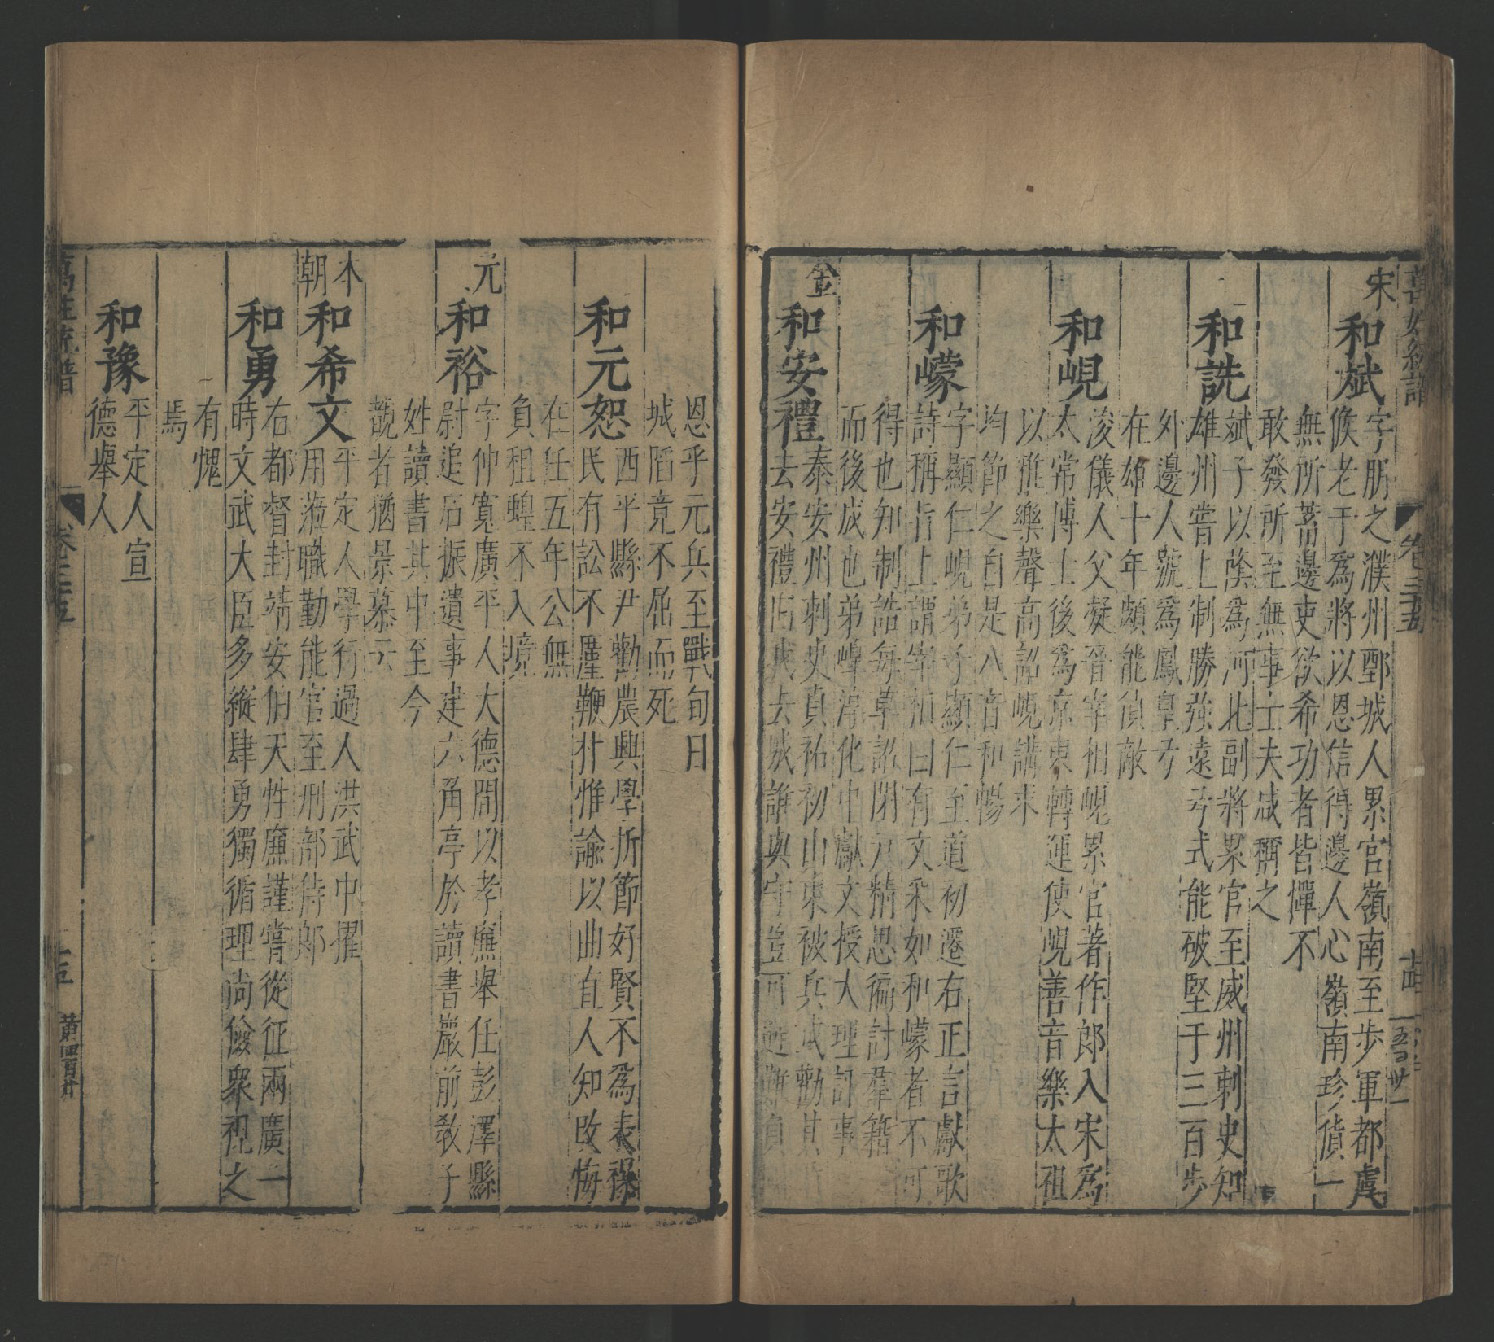 宋
和斌
字朋之濮州鄄城人累官嶺南至步軍都虞
候老于為將以恩信得邊人心嶺南珍貨一
無所蓄邊吏欲希功者皆憚不
敢發所至無事士夫咸稱之
和詵
斌子以蔭為河北副將累官至威州刺史知
雄州嘗上制勝強遠弓式能破堅于三百步
外邊人號為鳳凰弓
在雄十年頗能偵敵
和峴
浚儀人父凝晉宰相峴累官著作郎入宋為
太常博士後為京東轉運使峴善音樂太祖
以雅樂聲高詔峴講求
均節之自是八音和暢
和㠓
字顯仁峴弟予顯仁至道初遷右正言獻歌
詩稱旨上謂宰相曰有文釆如和㠓者不可
得也知制誥每草詔閉戶精思徧討羣籍
而後成也弟㠓淳化中獻文授大理評事
金
和安禮
泰安州刺史貞祐初山東被兵或勸其
去安禮曰我去城誰與守豈可避難負
萬姓統譜
卷三十五
恩乎元兵至戰旬日
城陷竟不屈而死
和元恕
西平縣尹勸農興學折節好賢不為表襮
民有訟不鏖鞭扑惟諭以曲直人知改悔
在任五年公無
負租蝗不入境
元
和裕
字仲寬廣平人大德間以孝廉舉任彭澤縣
尉追后振遺事建六角亭於讀書巖前教子
姓讀書其中至今
觀者猶景慕云
本朝
和希文
平定人學行過人洪武中擢
用蒞職勤能官至刑部侍郎
和勇
右都督封靖安伯天性廉謹嘗從征兩廣一
時文武大臣多縱肆勇獨循理尚儉衆視之
有愧
焉
和豫
平定人宣
德舉人
萬姓統譜
卷三十五